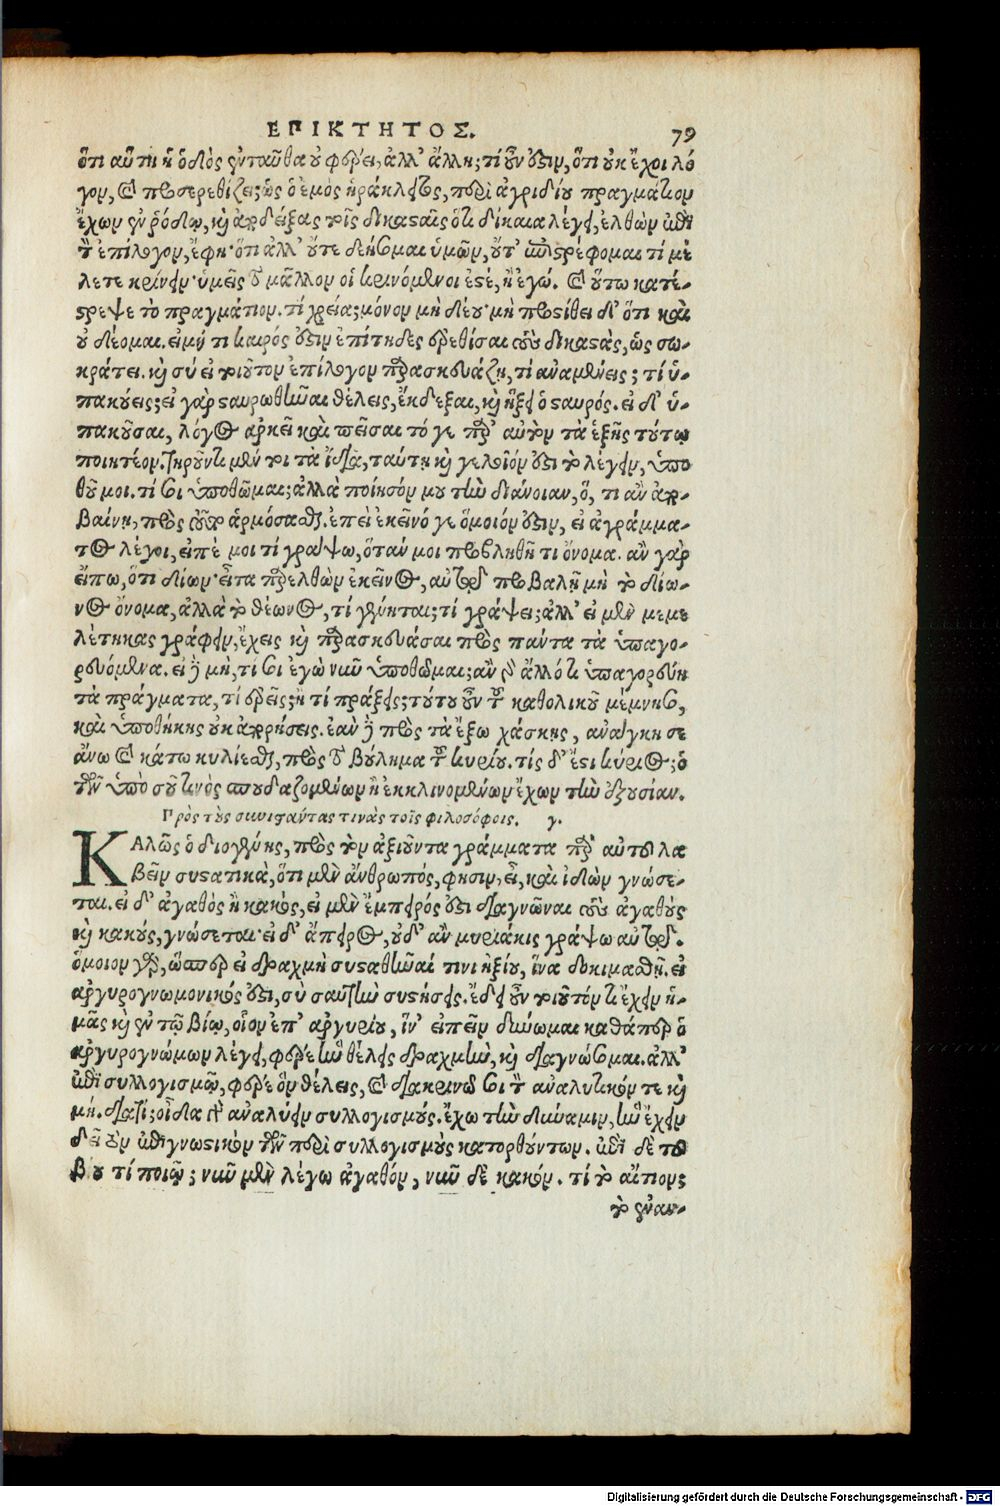 ΕΠΙΚΤΗΤΟΣ. 79
ὅτι αὕτη ἡ ὁδὸς ἐνταῦθα οὐ φέρει, ἀλλ' ἄλλη; τί οὖν ἐστιν, ὅτι οὐκ ἔχοι λό
γον, καὶ προσερεθίζει; ὡς ὁ ἐμὸς ἡράκλειτος, περὶ ἀγριδίου πραγμάτιον
ἔχων ἐν ῥόδῳ, καὶ παραδείξας τοῖς δικασταῖς ὅτι δίκαια λέγει, ἐλθὼν ἐπὶ
τὸν ἐπίλογον, ἔφη· ὅτι ἀλλ' οὔτε δεήσομαι ὑμῶν, οὔτ' ἐπιστρέφομαι τί μέ
λετε κρίνειν· ὑμεῖς τε μᾶλλον οἱ κρινόμενοι ἐστέ, ἢ ἐγώ. καὶ οὕτω κατέ-
στρεψε τὸ πραγμάτιον. τί χρεία; μόνον μὴ δέου· μὴ προστίθει δ' ὅτι καὶ
οὐ δέομαι. εἰ μή τι καιρός ἐστιν ἐπίτηδες ἐρεθίσαι τοὺς δικαστὰς, ὡς σω-
κράτει. καὶ σὺ εἰ τοιοῦτον ἐπίλογον παρασκευάζῃ, τί ἀναμένεις; τί ὑ-
πακούεις; εἰ γὰρ σταυρωθῆναι θέλεις, ἔκδεξαι, καὶ ἥξει ὁ σταυρός. εἰ δ' ὑ-
πακοῦσαι, λόγος ἀρκεῖ καὶ πεῖσαι τό γε παρ' αὐτὸν τὰ ἑξῆς τούτῳ
ποιητέον. τηροῦντι μέν τοι τὰ ἴδια, ταύτῃ καὶ γελοῖόν ἐστι τὸ λέγειν, ὑπο
θοῦ μοι. τί σοι ὑποθῶμαι; ἀλλὰ ποίησόν μου τὴν διάνοιαν, ὅ, τι ἂν ἀπο-
βαίνῃ, πρὸς τοῦτο ἁρμόσασθαι. ἐπεὶ ἐκεῖνό γε ὅμοιόν ἐστιν, εἰ ἀγράμμα-
τος λέγοι, εἰπέ μοι τί γράψω, ὅταν μοι προβληθῇ τι ὄνομα. ἂν γὰρ
εἴπω, ὅτι δίων· εἶτα παρελθὼν ἐκεῖνος, αὐτῷ προβάλῃ μὴ τὸ δίω-
νος ὄνομα, ἀλλὰ τὸ θέωνος, τί γένηται; τί γράψει; ἀλλ' εἰ μὲν μεμε
λέτηκας γράφειν, ἔχεις καὶ παρασκευάσαι πρὸς πάντα τὰ ὑπαγο-
ρευόμενα. εἰ δὲ μὴ, τί σοι ἐγὼ νῦν ὑποθῶμαι; ἂν γὰρ ἄλλό τι ὑπαγορεύῃ
τὰ πράγματα, τί ἐρεῖς; ἢ τί πράξεις; τούτου οὖν τοῦ καθολικοῦ μέμνησο,
καὶ ὑποθήκης οὐκ ἀπορήσεις. ἐὰν δὲ πρὸς τὰ ἔξω χάσκῃς, ἀνάγκη σε
ἄνω καὶ κάτω κυλίεσθαι, πρὸς τὸ βούλημα τοῦ κυρίου. τίς δ' ἔστι κύριος; ὁ
τῶν ὑπὸ σοῦ τινὸς σπουδαζομένων ἢ ἐκκλινομένων ἔχων τὴν ἐξουσίαν.
Πρὸς τοὺς συνιστάντας τινὰς τοῖς φιλοσόφοις. γ.
ΚΑΛῶς ὁ διογένης, πρὸς τὸν ἀξιοῦντα γράμματα παρ' αὐτοῦ λα
βεῖν συστατικὰ, ὅτι μὲν ἄνθρωπός, φησιν, εἶ, καὶ ἰδὼν γνώσε-
ται. εἰ δ' ἀγαθὸς ἢ κακὸς, εἰ μὲν ἔμπειρός ἐστι διαγνῶναι τοὺς ἀγαθοὺς
καὶ κακούς, γνώσεται· εἰ δ' ἄπειρος, οὐδ' ἂν μυριάκις γράψω αὐτῷ.
ὅμοιον γὰρ, ὥσπερ εἰ δραχμὴ συσταθῆναί τινι ἠξίου, ἵνα δοκιμασθῇ. εἰ
ἀργυρογνωμονικός ἐστι, σὺ σαυτὴν συστήσεις. ἔδει οὖν τοιοῦτόν τι ἔχειν ἡ-
μᾶς καὶ ἐν τῷ βίῳ, οἷον ἐπ' ἀργυρίου, ἵν' εἰπεῖν δύνωμαι καθάπερ ὁ
ἀργυρογνώμων λέγει, φέρε ἣν θέλεις δραχμὴν, καὶ διαγνώσομαι. ἀλλ'
ἐπὶ συλλογισμῷ, φέρε ὃν θέλεις, καὶ διακρινῶ σοι τὸν ἀναλυτικόν τε καὶ
μή. διατί; οἶδα γὰρ ἀναλύειν συλλογισμούς. ἔχω τὴν δύναμιν, ἣν ἔχειν
δεῖ τὸν ἐπιγνωστικὸν τῶν περὶ συλλογισμοὺς κατορθούντων. ἐπὶ δὲ τοῦ
βίου τί ποιῶ; νῦν μὲν λέγω ἀγαθόν, νῦν δὲ κακόν. τί τὸ αἴτιον;
τὸ ἐναν-
Digitalisierung gefördert durch die Deutsche Forschungsgemeinschaft - DFG